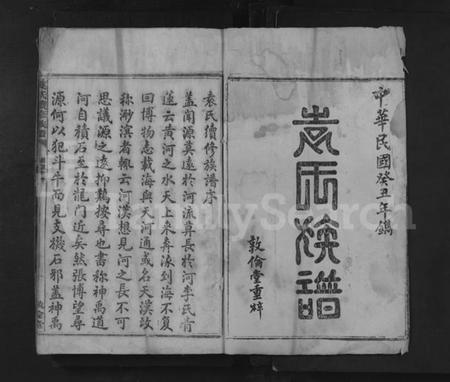 中華民國癸丑年鐫
袁氏族譜
敦倫堂重梓
袁氏續修族譜序
蓋聞源莫遠於河流算長於河李氏青
蓮云黃河之水天上來奔流到海不復
回博物志載海與天河通或名天漢故
称渺濱者輒云河漢想見河之長不可
思議源之遠抑難按尋也書称神禹道
河自積石至於龍門近矣然張博望尋
源何以犯斗牛而見支機石邪蓋神禹
MyFamilySearch